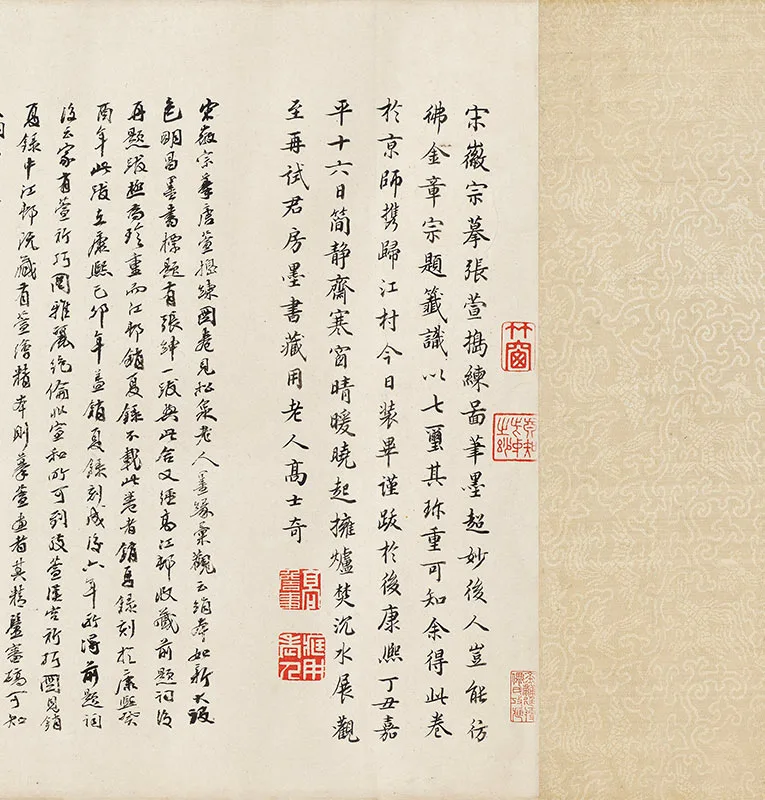 宋徽宗摹張萱搗練啚筆墨超妙後人豈能彷
彿金章宗題籤識以七璽其珎重可知余得此卷
於京師携歸江村今日装畢謹跋於後康熈丁丑嘉
平十六日簡靜齋寒窗晴暖曉起擁爐焚沉水展觀
至再試君房墨書藏用老人髙士奇
宋徽宗摹唐萱搗練圖卷見松泉老人墨緣彙觀云絹本如新大設
色明昌墨書標題有張紳一跋與此合又經高江邨收藏前題詞後
再題跋極為珍重而江邨銷夏錄不載此卷者銷夏錄刻於康熙癸
酉年此跋在康熙己卯年蓋銷夏錄刻成後六年所得前題詞
後云家有萱祈巧圖雅麗絕倫宣和所可到跋萱漢宮祈巧圖見銷
夏錄中江邨藏有萱繪精本則摹萱畫者其精鑒審碻可知
竹窗
藏用老人